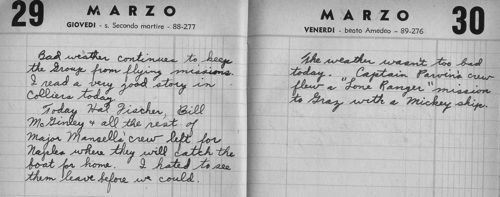 29
MARZO
GIOVEDI - s. Secondo martire - 88-277
Bad weather continues to keep
the Group from flying missions.
I read a very good story in
Colliers today.
Today Hal Fischer, Bill
McGinley & all the rest of
Major Mansell's crew left for
Naples where they will catch the
boat for home. I hated to see
them leave before we could.
MARZO
30
VENERDI - beato Amedeo - 89-276
The weather wasn't too bad
today. Captain Parvin's crew
flew a "Lone Ranger" mission
to Graz with a Mickey ship.